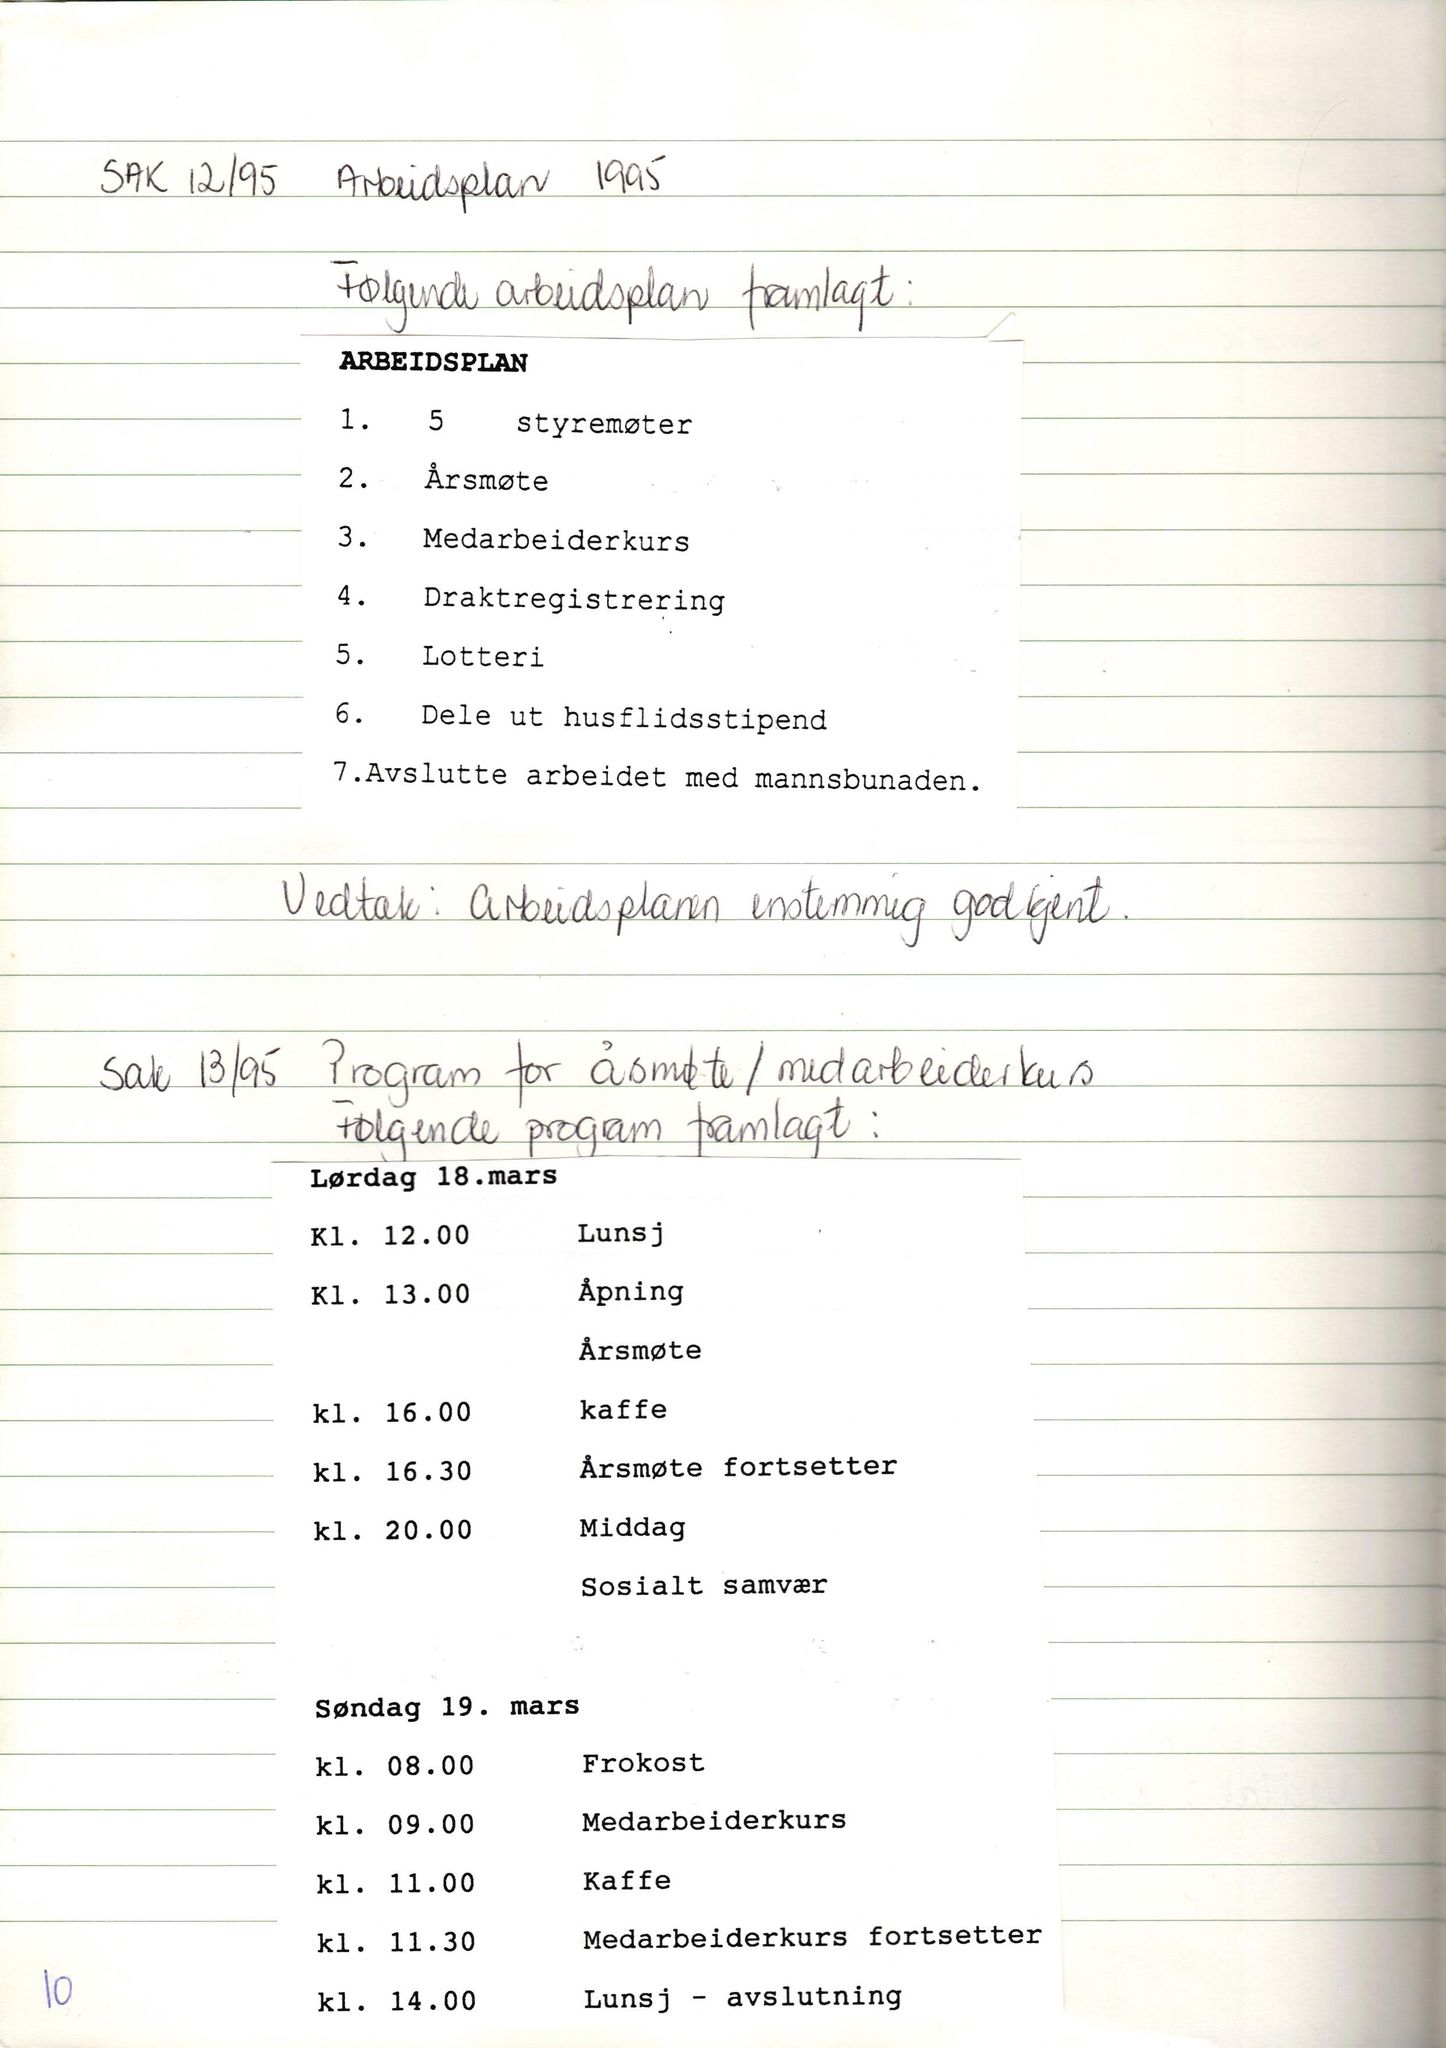 SAK 12/95 Arbeidsplan 1995
Følgende arbeidsplan framlagt:
ARBEIDSPLAN
1. 5 styremøter
2. Årsmøte
3. Medarbeiderkurs
4. Draktregistrering
5. Lotteri
6. Dele ut husflidsstipend
7.Avslutte arbeidet med mannsbunaden.
Vedtak: Arbeidsplanen enstemmig godkjent.
Sak 13/95 Program for åsmøte/medarbeiderkurs
Følgende program framlagt:
Lørdag 18.mars
Kl. 12.00 Lunsj
Kl. 13.00 Åpning
Årsmøte
kl. 16.00 kaffe
kl. 16.30 Årsmøte fortsetter
kl. 20.00 Middag
Sosialt samvær
Søndag 19. mars
kl. 08.00 Frokost
kl. 09.00 Medarbeiderkurs
kl. 11.00 Kaffe
kl. 11.30 Medarbeiderkurs fortsetter
kl. 14.00 Lunsj - avslutning
10